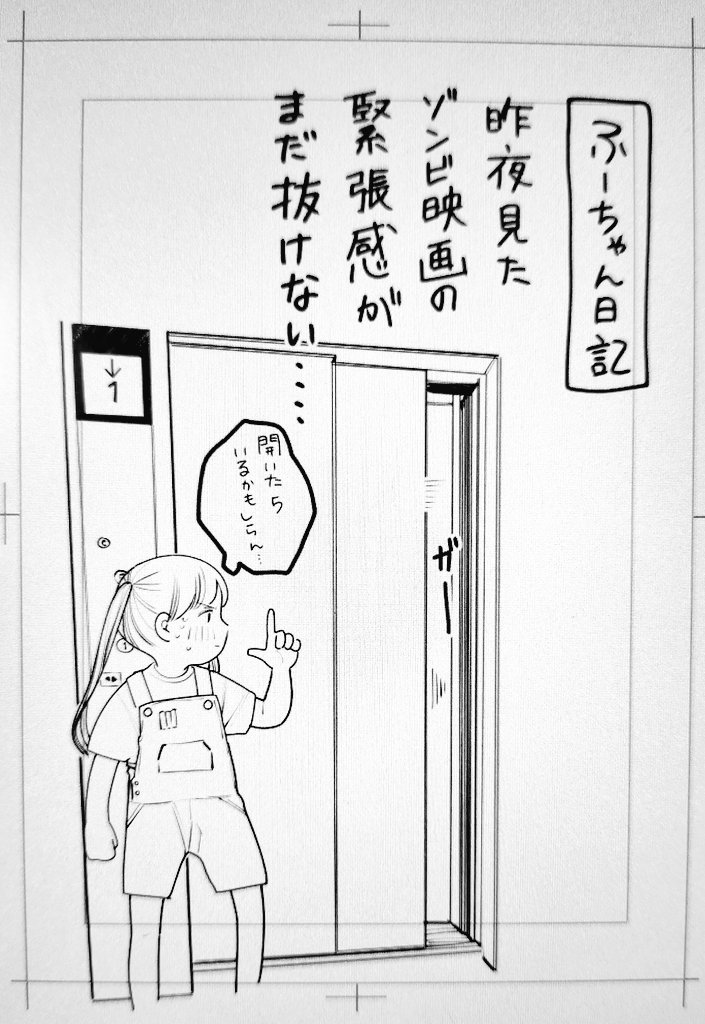 ふーちゃん日記
昨夜見た
ゾンビ映画の
緊張感が
まだ抜けない……
↓
1
開いたら
いるかもしらん…
ガーー